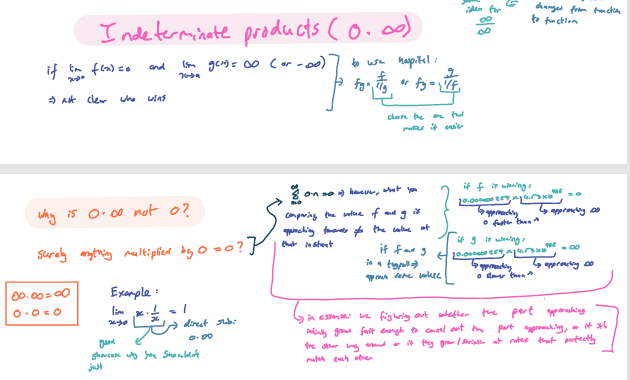 idea for
∞/∞
changes from function
to function
Indeterminate products (0.∞)
if lim x→a f(x)=0 and lim x→a g(x)=∞ (or -∞)
⇒ not clear who wins
to use hospital:
fg = f/(1/g) or fg = g/(1/f)
choose the one that
makes it easier
why is 0.∞ not 0?
surely anything multiplied by 0 = 0?
0.n = 0 ⇒ however, what you
comparing the value f and g is
approaching towards the value at
that instant
if f and g
in a
approach some value
if f is winning:
= 0
approaching
0 faster than
approaching ∞
if g is winning:
= ∞
approaching
0 slower than
approaching ∞
∞.∞=∞
0.0=0
Example:
lim x→0 x · 1/x = 1
direct sub:
0.∞
good
showcase why you shouldn't
just
in essence: we figuring out whether the part approaching
infinity grows fast enough to cancel out the part approaching, or if its
the other way around or if they grow/shrink at rates that perfectly
match each other